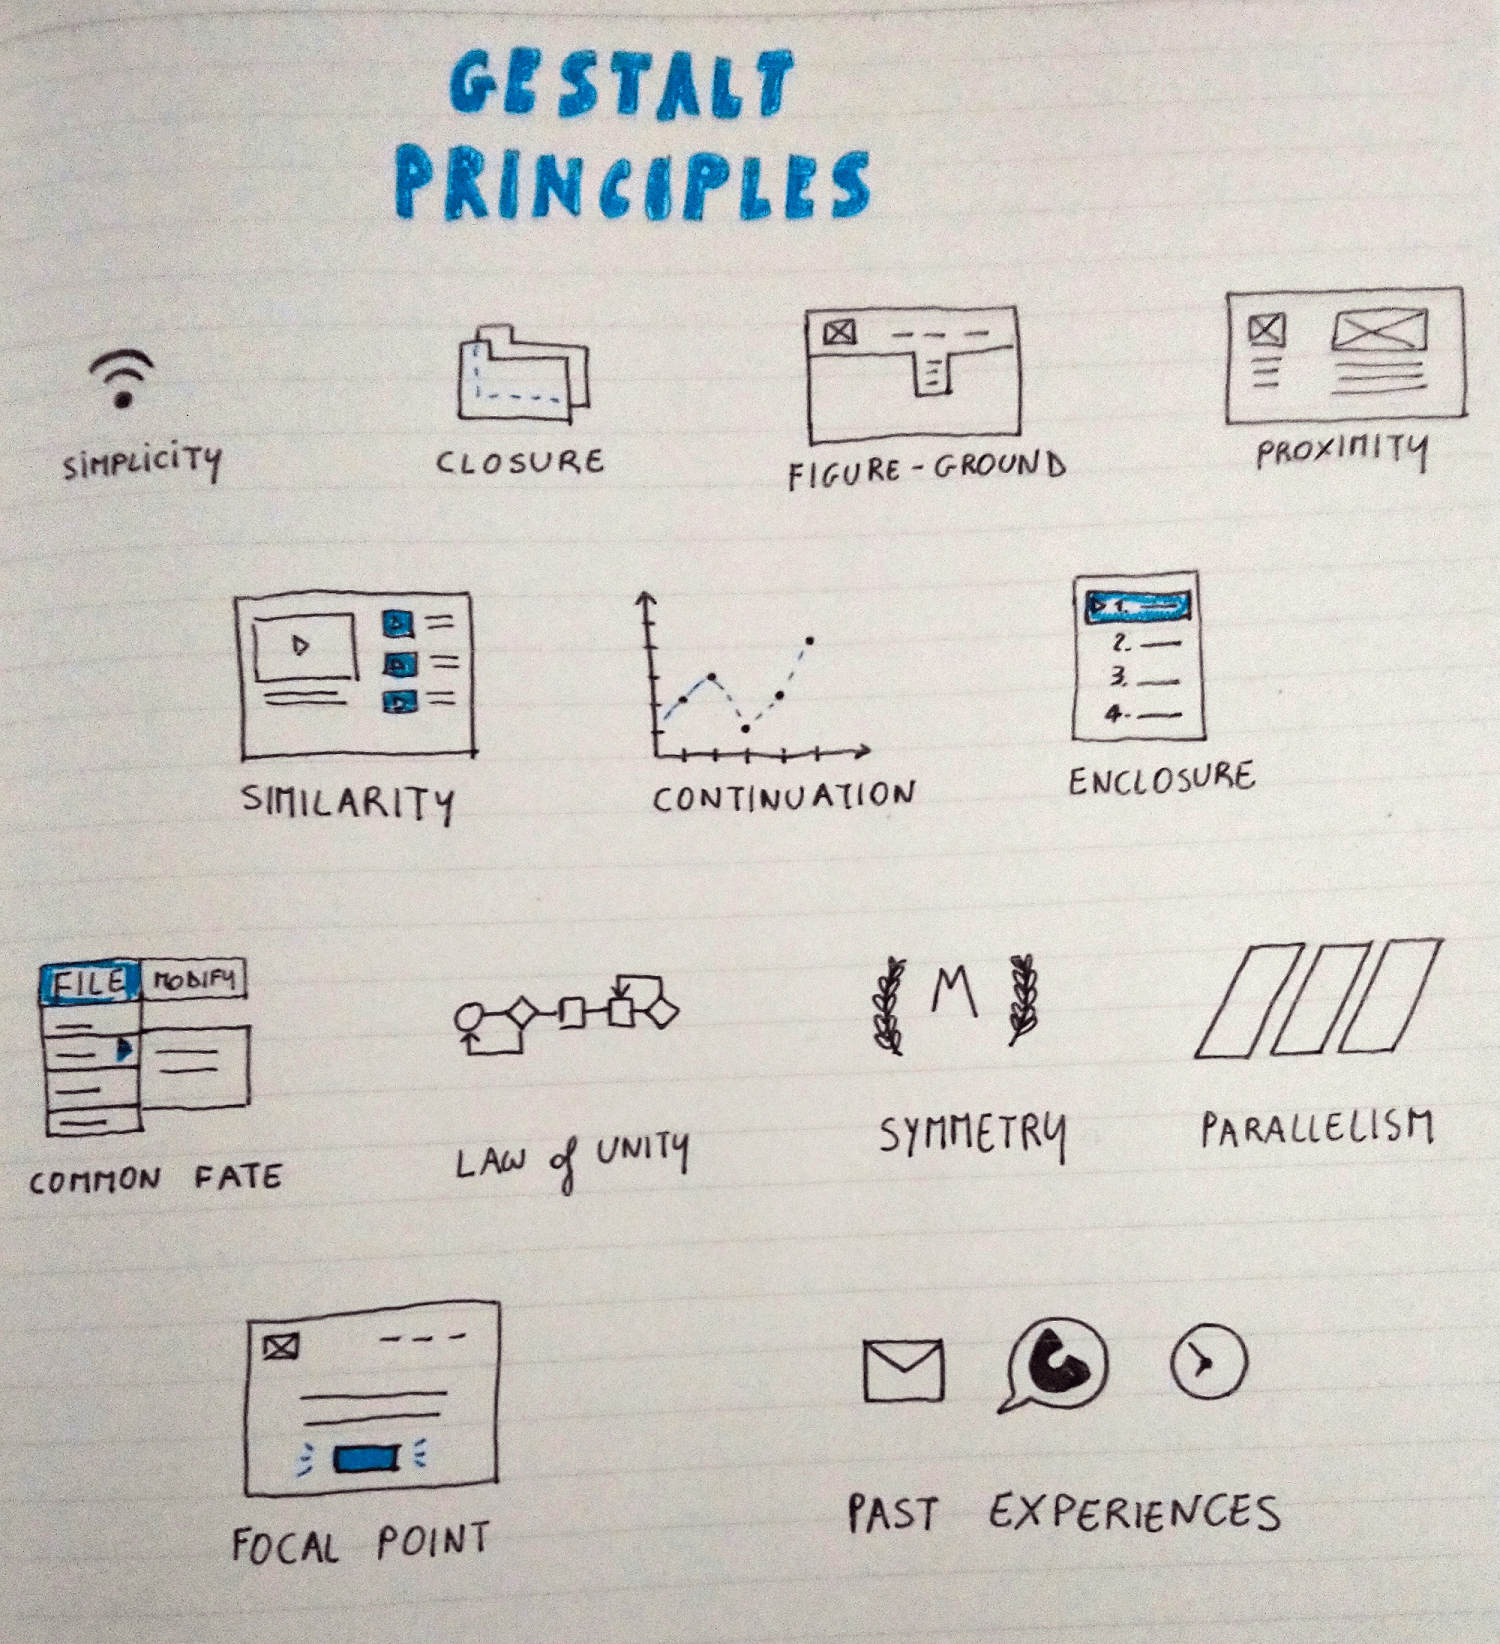 GESTALT
PRINCIPLES
SiMPLiCiTY
CLOSURE
FIGURE-GROUND
PROXIMITY
1.
2.
3.
4.
SIMILARITY
CONTINUATION
ENCLOSURE
FILE MODIFY
M
COMMON FATE
LAW of UNITY
SYMMETRY
PARALLELISM
FOCAL POINT
PAST EXPERIENCES